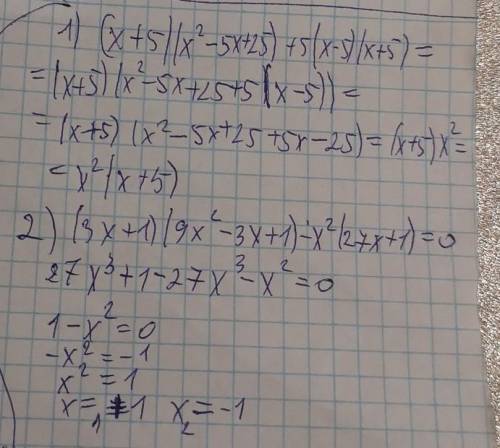 1) (x+5)(x²-5x+25)+5(x-5)(x+5)=
=(x+5)(x²-5x+25+5(x-5))=
=(x+5)(x²-5x+25+5x-25)=(x+5)x²=
=x²(x+5)
2) (3x+1)(9x²-3x+1)-x²(27x+1)=0
27x³+1-27x³-x²=0
1-x²=0
-x²=-1
x²=1
x₁=1 x₂=-1